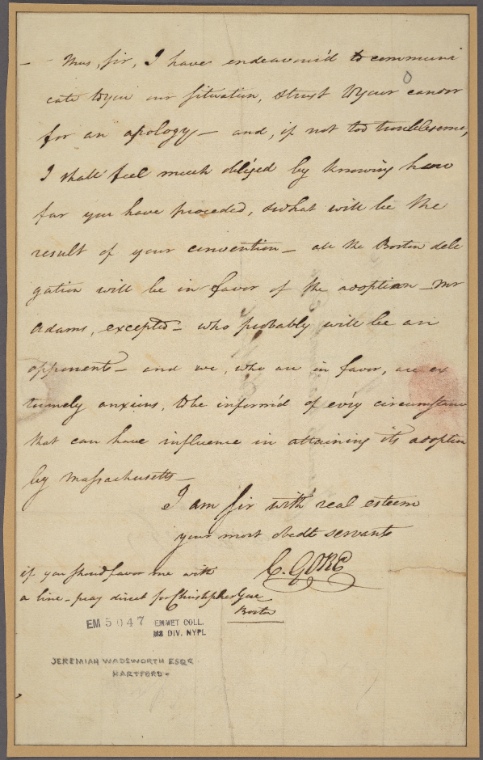 - Thus, Sir, I have endeavour'd to communi
cate to you our situation, & trust to your candor
for an apology - and, if not too troublesome,
I shall feel much obliged by knowing how
far you have proceeded, & what will be the
result of your convention - all the Boston dele
gation will be in favor of the adoption - Mr
Adams, excepted - who probably will be an
opponent - and we, who are in favor, are ex
tremely anxious, to be inform'd of ev'ry circumstance
that can have influence in attaining its adoption
by Massachusetts -
I am Sir with real esteem
your most obedt servant
C. GORE
if you should favor me with
a line - pray direct for Christopher Gore
Boston
EM 5047 EMMET COLL.
MS DIV. NYPL
JEREMIAH WADSWORTH ESQR
HARTFORD -